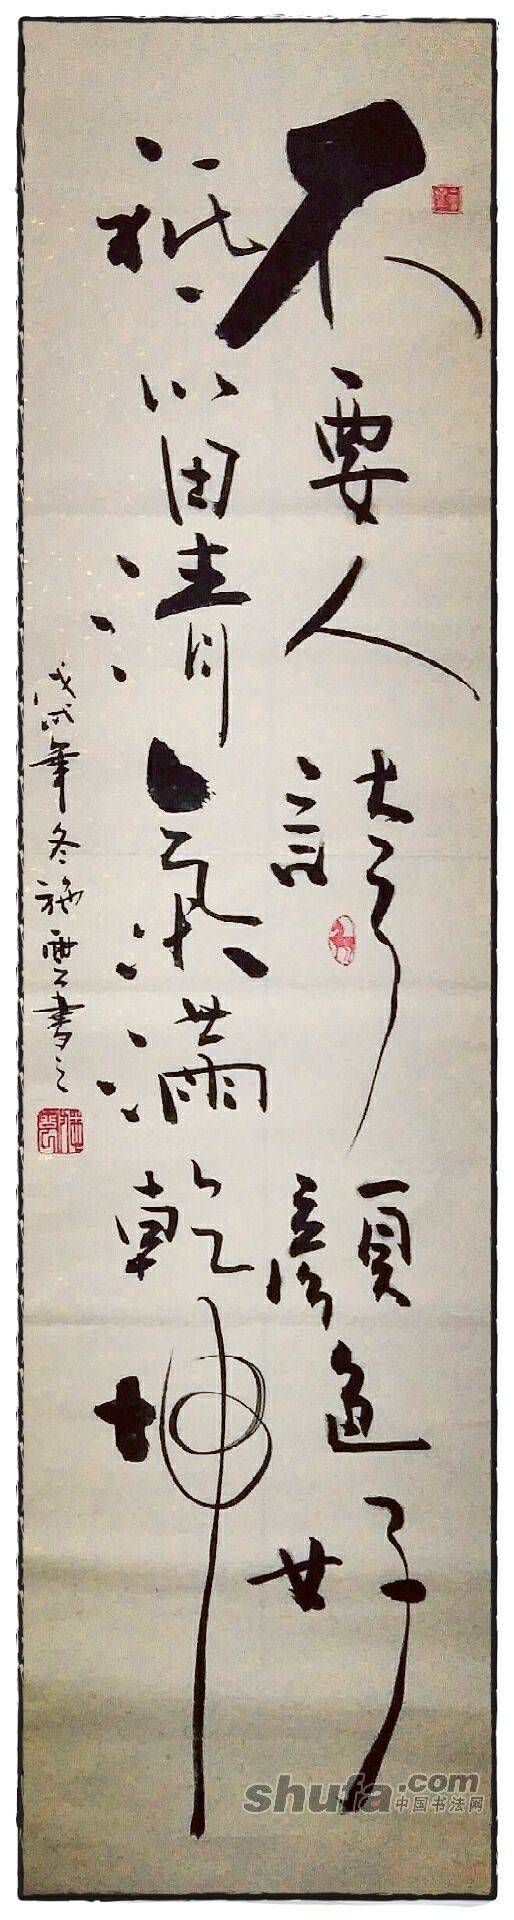 不要人誇顏色好
祗留清氣滿乾坤
戊戌年冬施雲書之
shufa.com
中国书法网